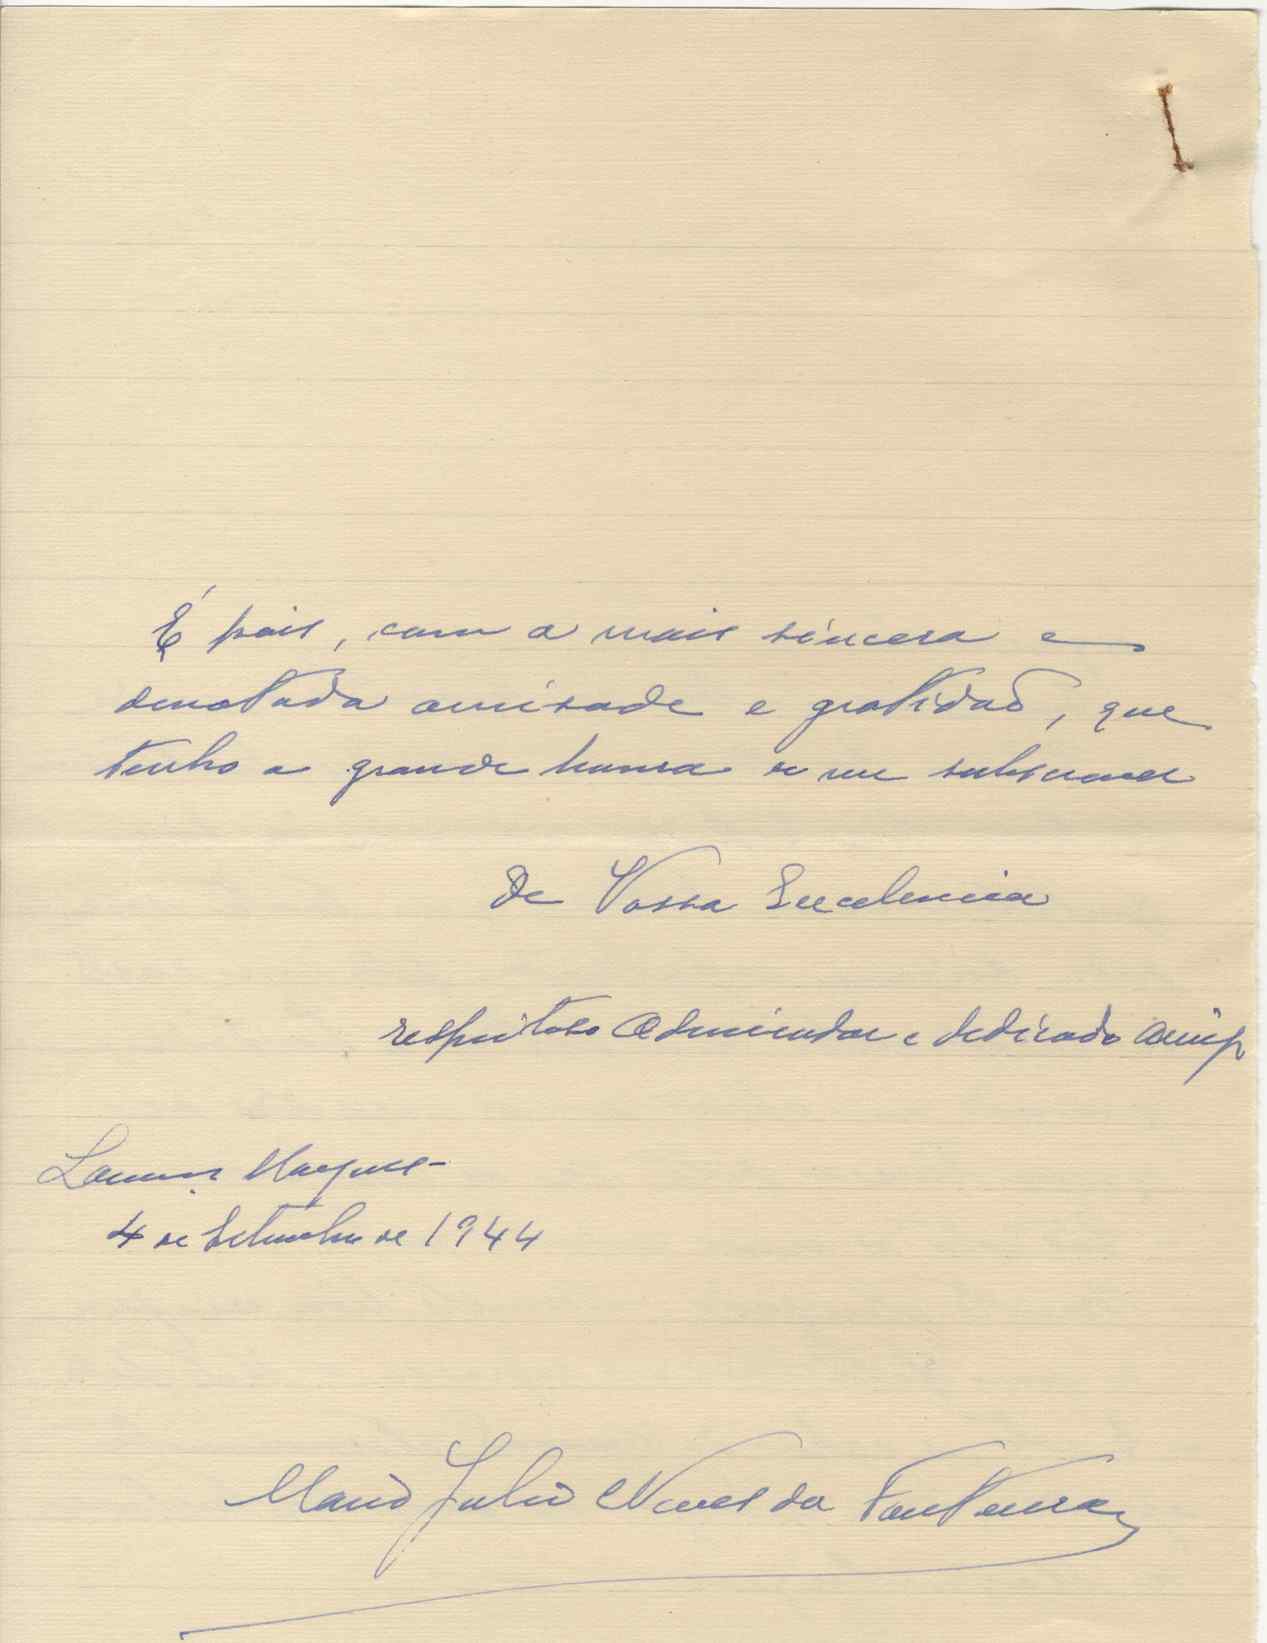 É pois, com a mais sincera e
devotada amisade e gratidão, que
tenho a grande honra de me subscrever
de Vossa Excelencia
respeitoso admirador e dedicado amigo
Lourenço Marques -
4 de Setembro de 1944
Mario Julio Neves da Fontoura